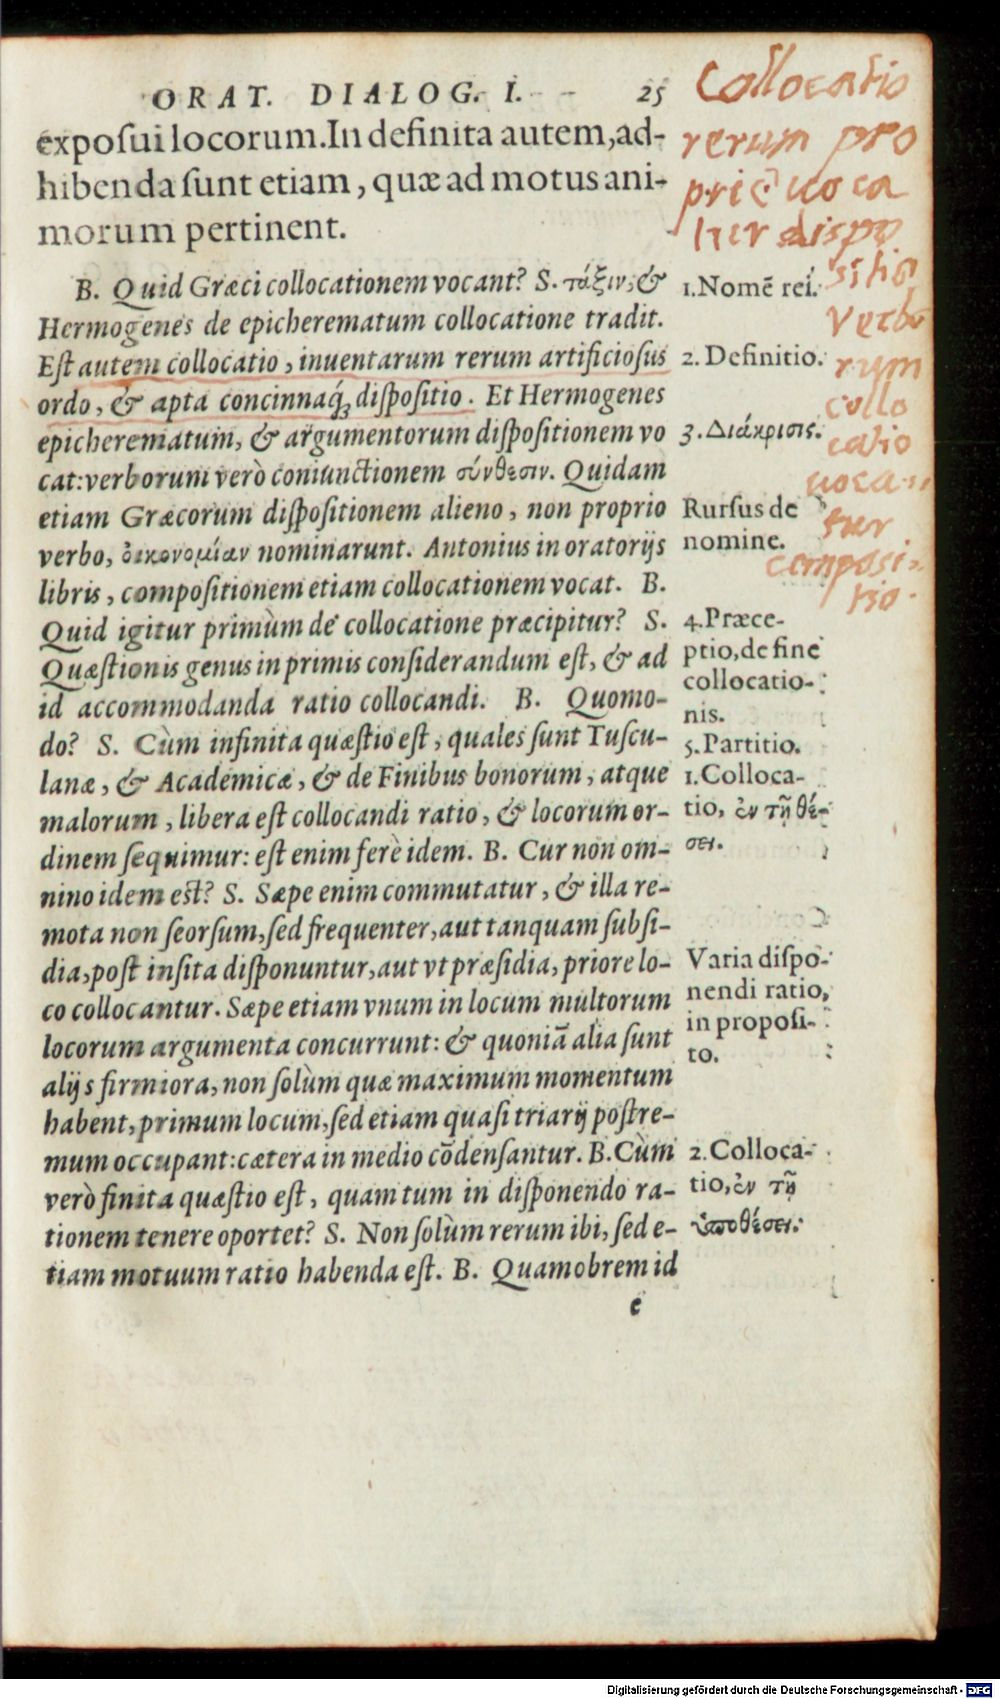 ORAT. DIALOG. I. 25
exposui locorum. In definita autem, ad-
hibenda sunt etiam, quæ ad motus ani-
morum pertinent.
B. Quid Græci collocationem vocant? S. τάξιν, &
Hermogenes de epicherematum collocatione tradit.
Est autem collocatio, inuentarum rerum artificiosus
ordo, & apta concinnaq́; dispositio. Et Hermogenes
epicherematum, & argumentorum dispositionem vo
cat: verborum verò coniunctionem σύνθεσιν. Quidam
etiam Græcorum dispositionem alieno, non proprio
verbo, οἰκονομίαν nominarunt. Antonius in oratorijs
libris, compositionem etiam collocationem vocat. B.
Quid igitur primùm de collocatione præcipitur? S.
Quæstionis genus in primis considerandum est, & ad
id accommodanda ratio collocandi. B. Quomo-
do? S. Cùm infinita quæstio est, quales sunt Tuscu-
lanæ, & Academicæ, & de Finibus bonorum, atque
malorum, libera est collocandi ratio, & locorum or-
dinem sequimur: est enim ferè idem. B. Cur non om-
nino idem est? S. Sæpe enim commutatur, & illa re-
mota non seorsum, sed frequenter, aut tanquam subsi-
dia, post insita disponuntur, aut vt præsidia, priore lo-
co collocantur. Sæpe etiam vnum in locum multorum
locorum argumenta concurrunt: & quoniã alia sunt
alijs firmiora, non solùm quæ maximum momentum
habent, primum locum, sed etiam quasi triarij postre-
mum occupant: cætera in medio cōdensantur. B. Cùm
verò finita quæstio est, quam tum in disponendo ra-
tionem tenere oportet? S. Non solùm rerum ibi, sed e-
tiam motuum ratio habenda est. B. Quamobrem id
e
1. Nomē rei.
2. Definitio.
3. Διάκρισις.
Rursus de
nomine.
4. Præce-
ptio, de fine
collocatio-
nis.
5. Partitio.
1. Colloca-
tio, ἐν τῇ θέ-
σει.
Varia dispo-
nendi ratio,
in proposi-
to.
2. Colloca-
tio, ἐν τῇ
ὑποθέσει.
Collocatio
rerum pro
prie uoca
tur dispo
sitio
Verbo
rum
collo
catio
uoca-
tur
composi-
tio.
Digitalisierung gefördert durch die Deutsche Forschungsgemeinschaft - DFG